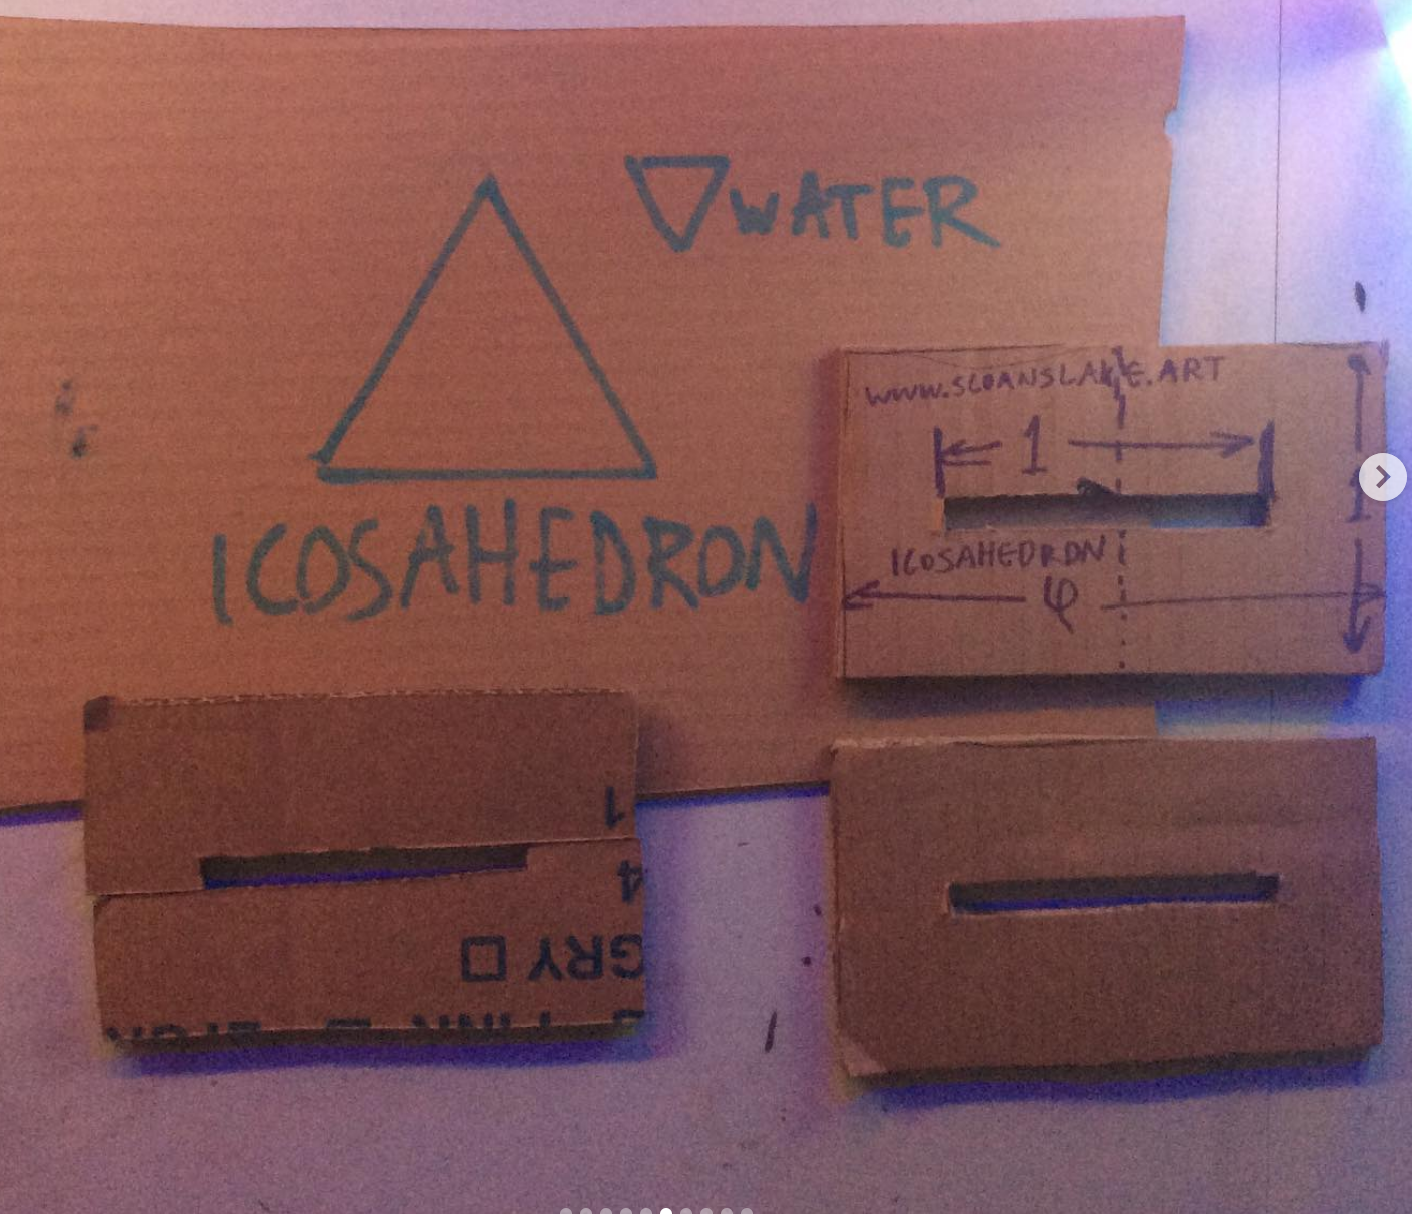 WATER
ICOSAHEDRON
WWW.SLOANSLAKE.ART
1
1
ICOSAHEDRON
φ
1
4
GRY
PINK